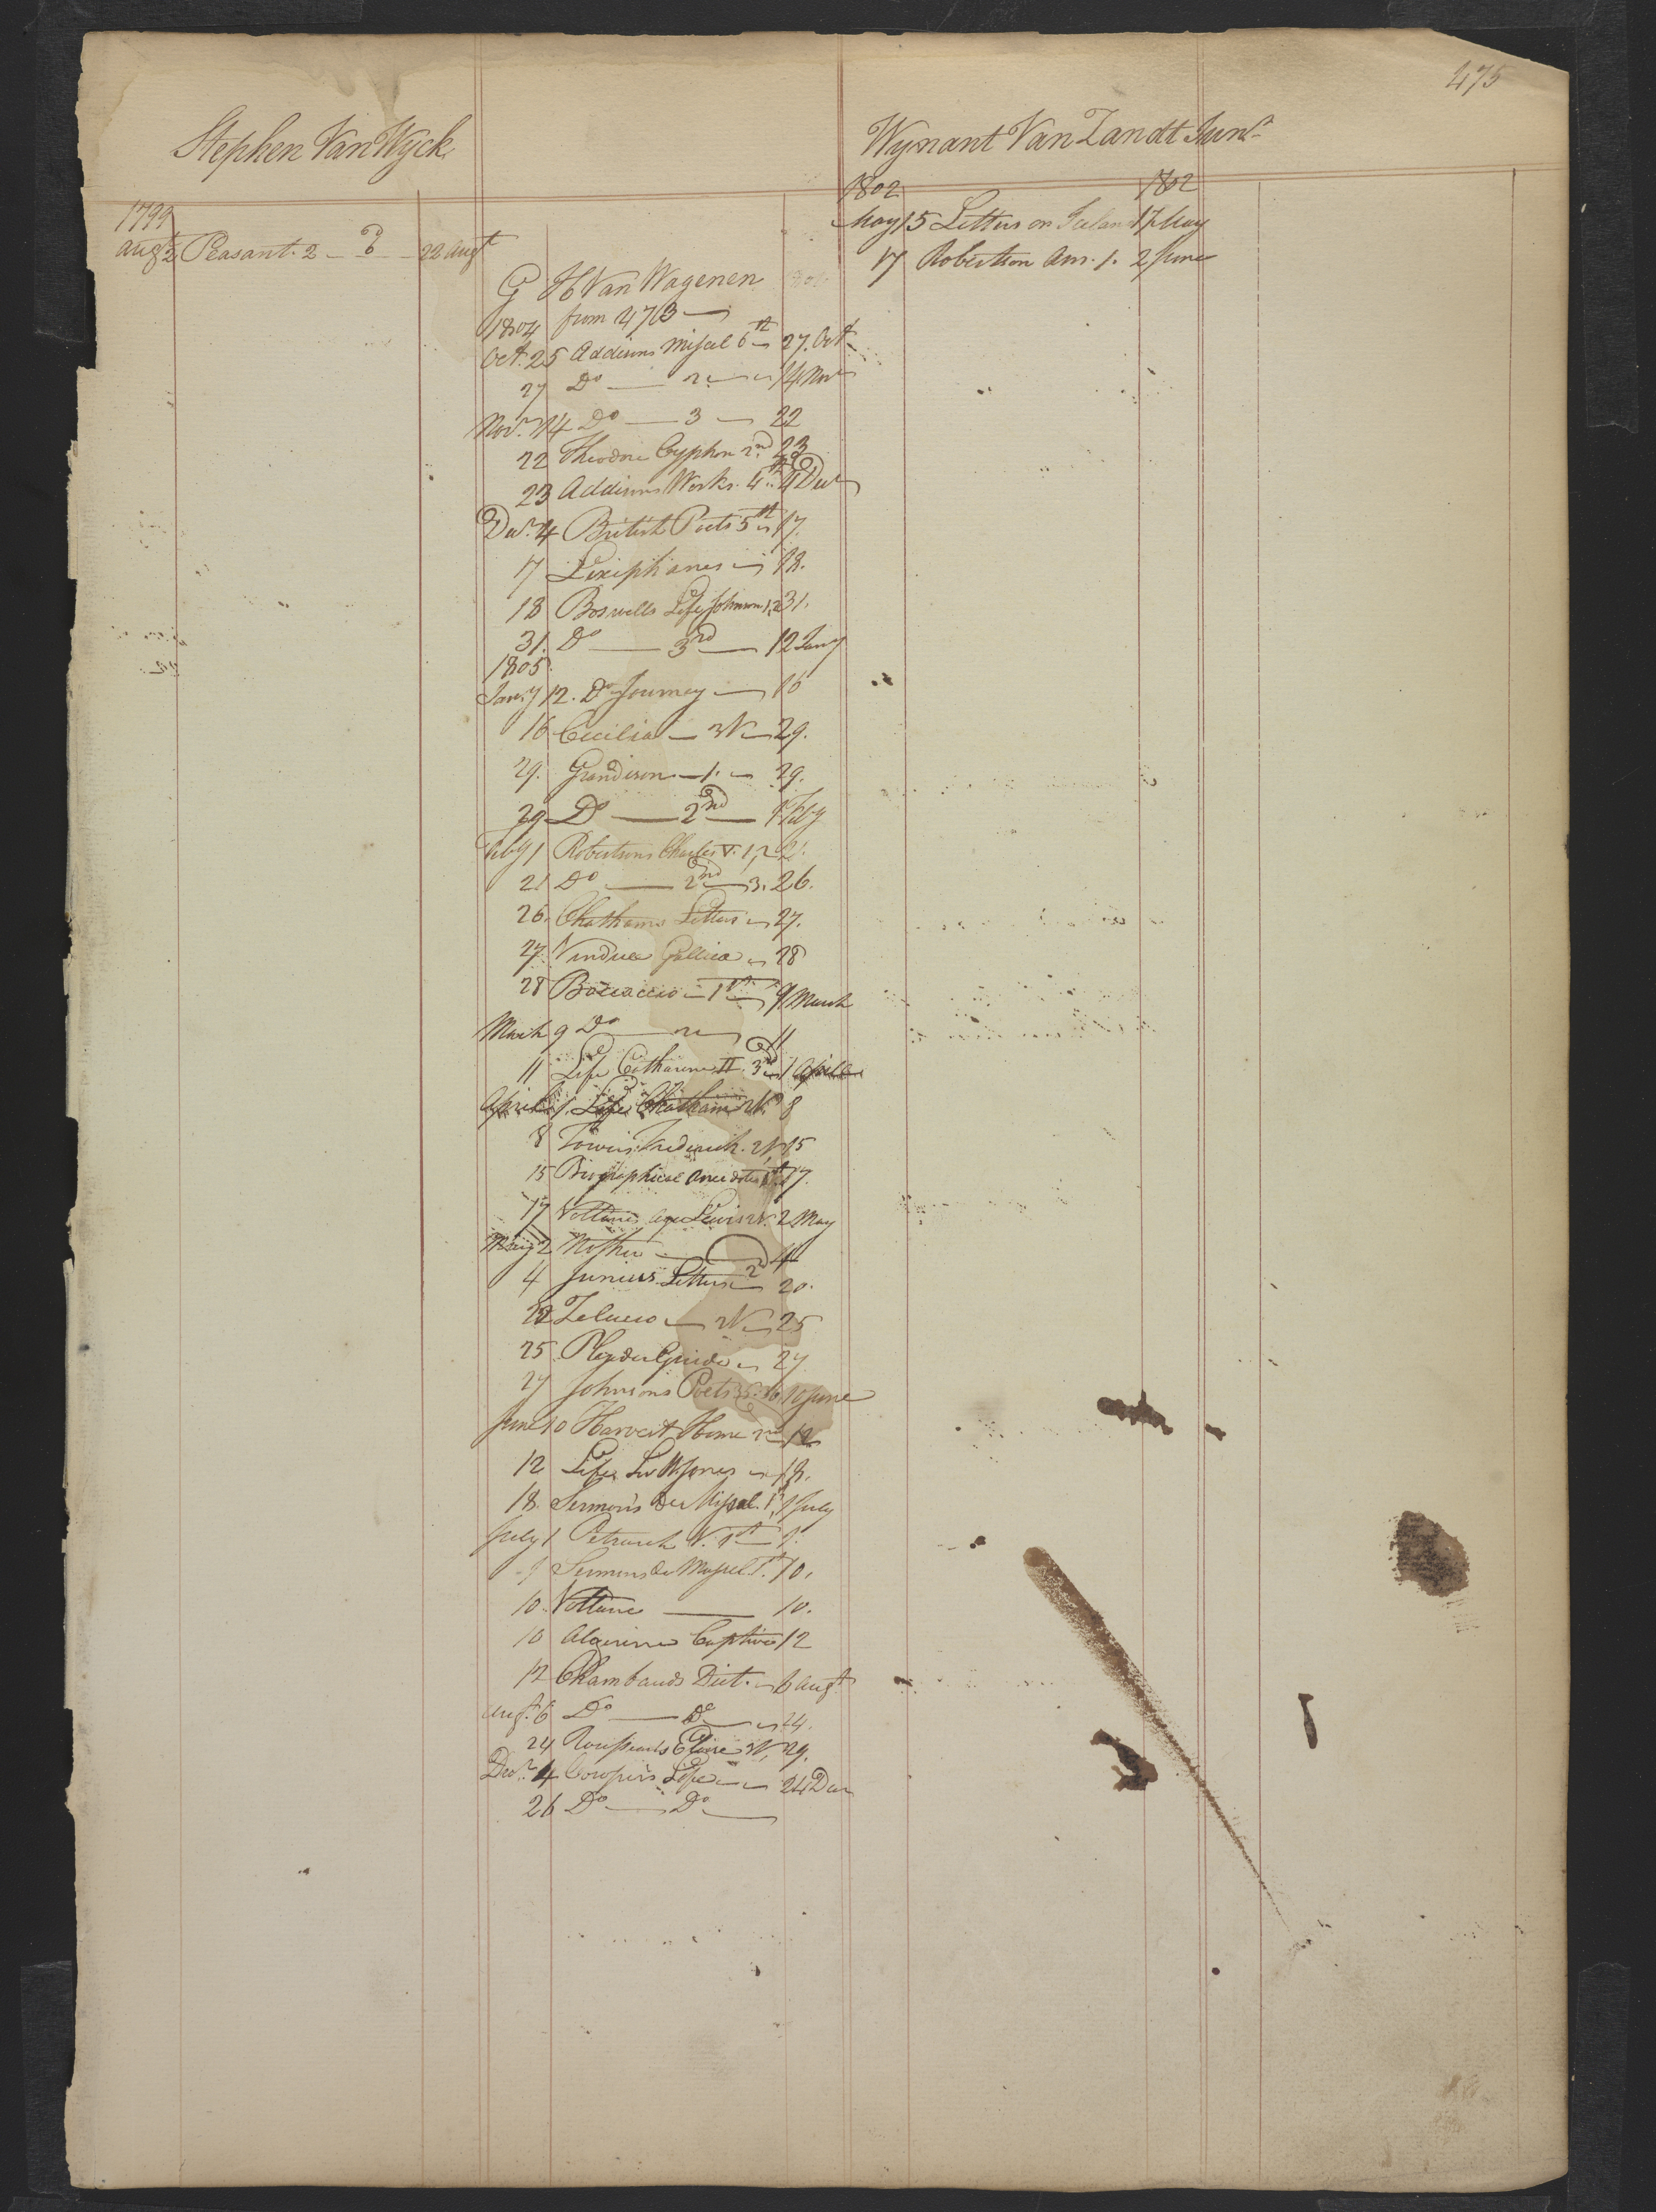 475
Stephen Van Wyck
1799
Augt 2 Peasant. 2 — 22 Augt
G H Van Wagenen
1804 from 473 —
Oct. 25 Addisons Miscel 6th 27. Oct
27 Do — 2 — 14 Nov
Nov. 14 Do — 3 — 22
22 Theodore Cyphon 2nd 23
23 Addisons Works. 4th 4 Decr
Decr. 4 British Poets 5th 17.
17 Lexiphanes — 18.
18 Boswells Life Johnson 1,2 31.
31. Do — 3rd — 12 Jany
1805
Jany 12. Do Journey — 16
16 Cecilia — 29.
29. Grandison — 1. — 29.
29 Do — 2nd — 1 Feby
Feby 1 Robertsons Charles V. 1,2 21.
21 Do — 2nd — 3. 26.
26. Chathams Letters — 27.
27. Vindicea Gallica — 28
28 Boccaccio — 1st — 9 March
March 9 Do — 2 — 11
11 Life Catharine II. 3rd 1 April
April 1. Life Chatham 8
8 Towers Frederick. 15
15 Biographical Anecdotes 17.
17 Voltaires age Lewis 2 May
May 2 Mother — 4
4 Junius Letters 2d 20.
22 Zeluco — 25
25 Pleader Guide — 27
27 Johnsons Poets 10 June
June 10 Harvest Home 2 12
12 Life Sir W Jones — 18.
18. Sermons de Missel. 1st 1 July
July 1 Petrarch V. 1st — 9.
9 Sermons de Missel 1st. 10.
10. Voltaire — 10.
10 Algerine Captive 12
12 Chambauds Dict. — 6 Augt
Augt. 6 Do — Do — 24.
24 Rousseaus Eloise 29.
Decr. 4 Cowpers Life — 24 Decr
26 Do — Do —
Wynant Van Zandt Junr
1802 1802
May 15 Letters on Iceland 17 May
17 Robertson Am. 1. 2 June